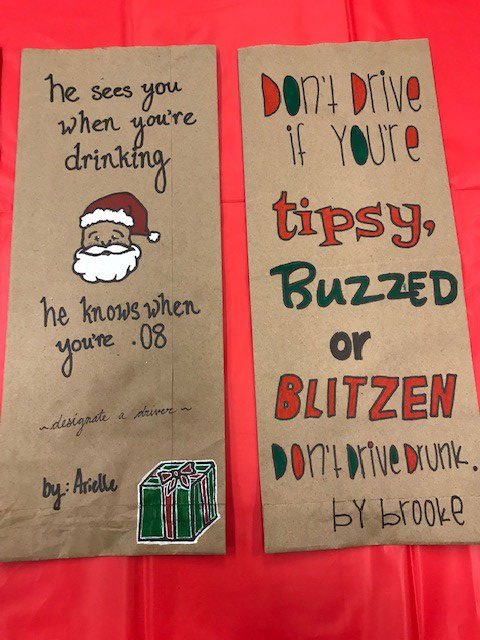 he sees you
when you're
drinking
he knows when
you're .08
~designate a driver~
by: Arielle
Don't Drive
if You're
tipsy,
BUZZED
or
BLITZEN
Don't Drive Drunk.
by brooke